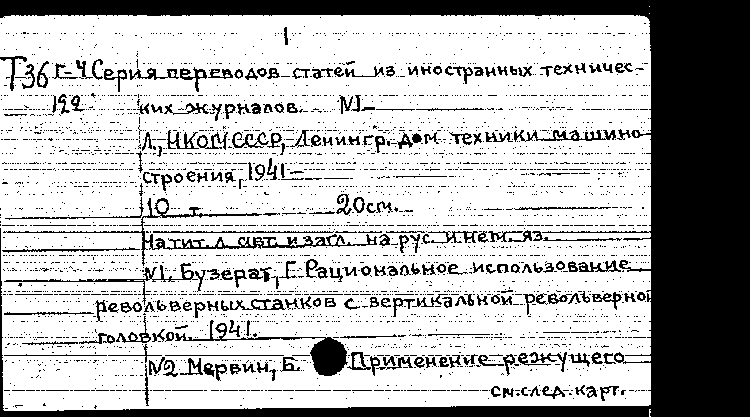 1
Т36 Г-4 Серия переводов статей из иностранных техничес-
192 ких журналов. №1-
Л., НКОМ СССР, Ленингр. дом техники машино-
строения, 1941-
10 т. 20см.
На тит. л. авт. и загл. на рус. и нем. яз.
№1. Бузерат, Г. Рациональное использование
револьверных станков с вертикальной револьверной
головкой. 1941.
№2 Мервин, Б. Применение режущего
см. след. карт.